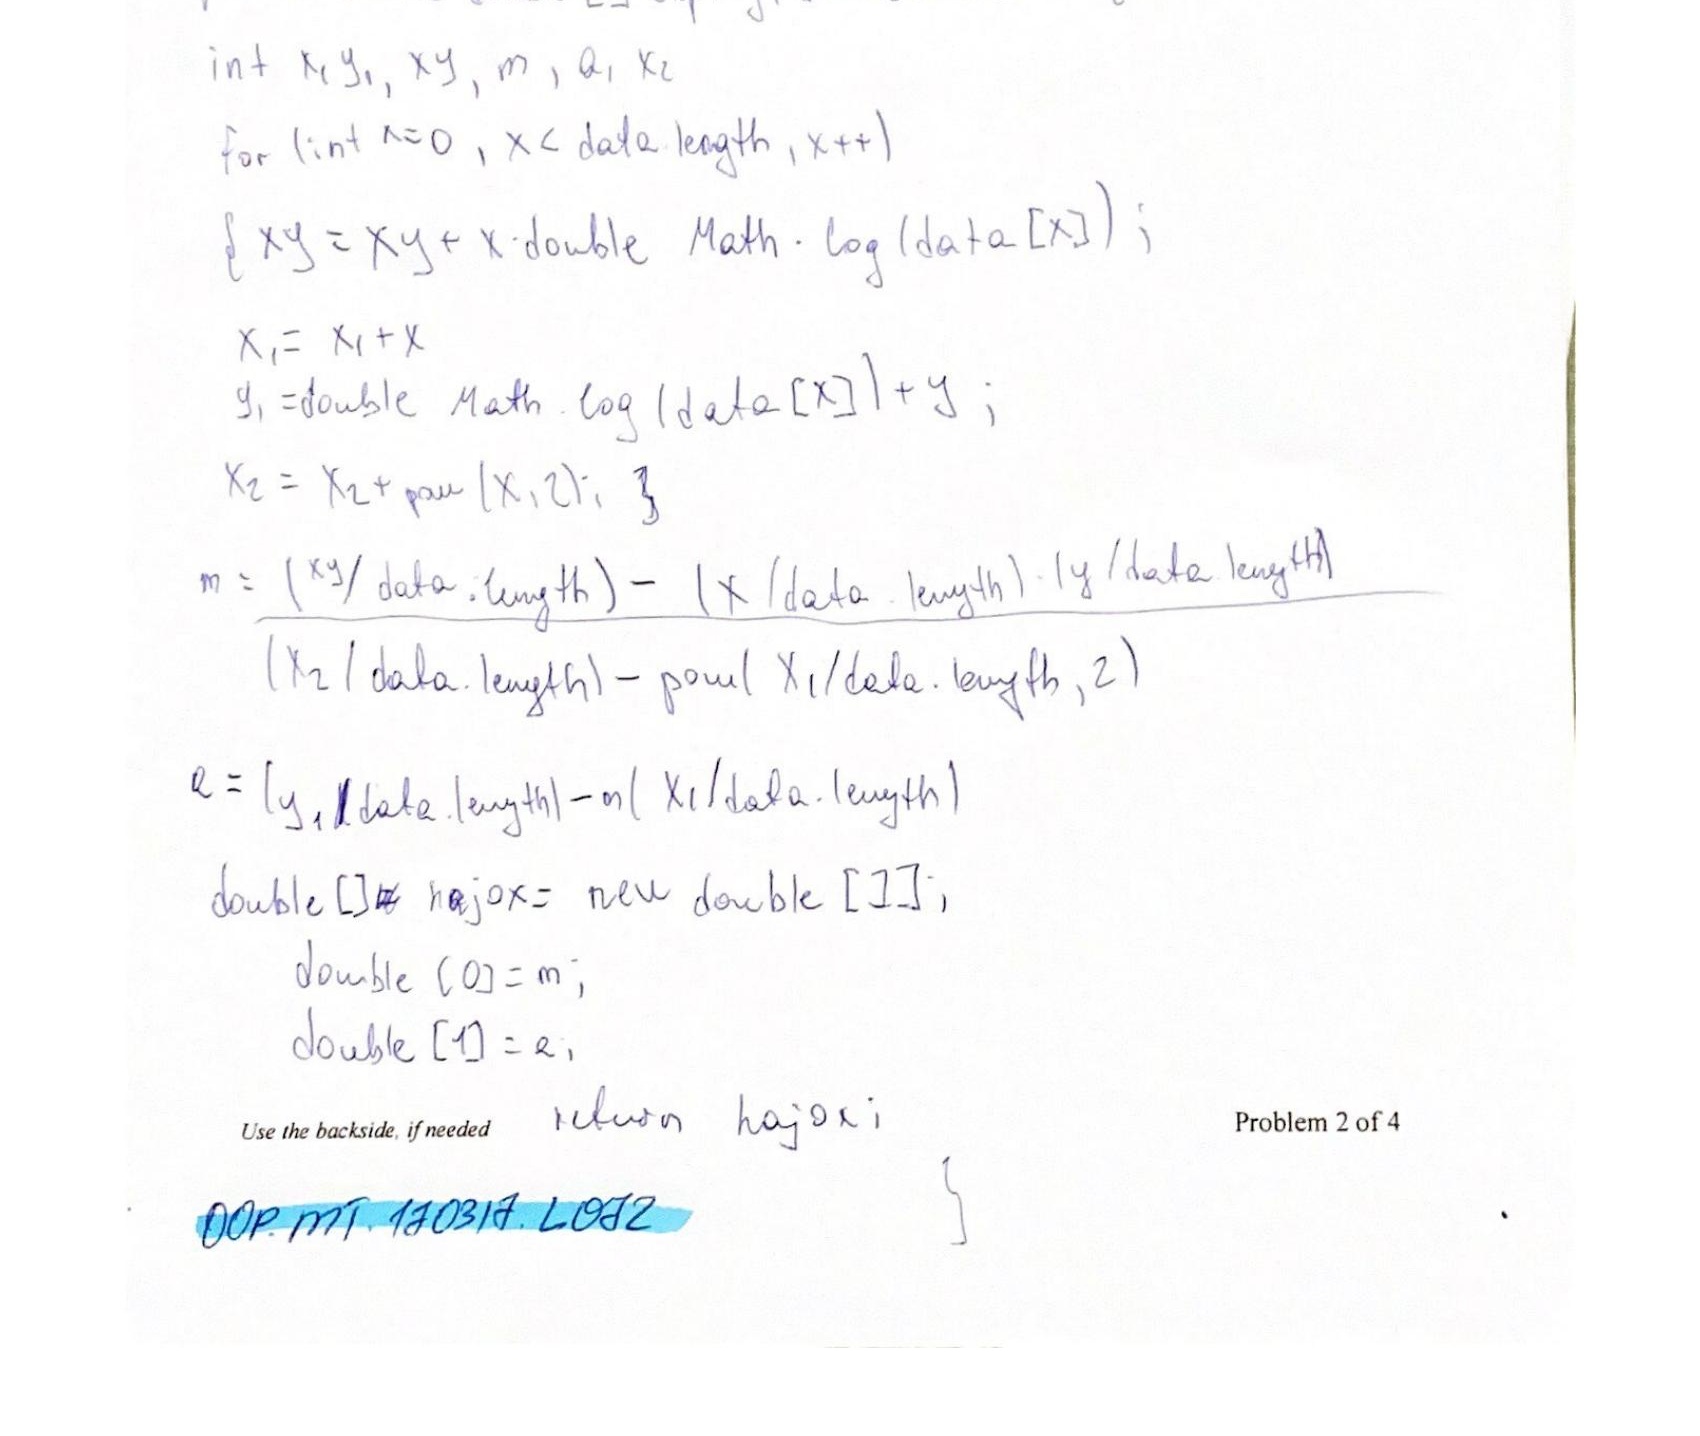 int x₁ y₁, xy, m, a, x₂
for (int x=0, x< data.length, x++)
{ xy = xy + x·double Math.log(data[x]);
x₁ = x₁ + x
y₁ = double Math.log(data[x]) + y;
x₂ = x₂ + pow (x,2); }
m = (xy/data.length) - (x/data.length)·(y/data.length)
(x₂/data.length) - pow( x₁/data.length, 2)
a = (y₁/data.length) - m( x₁/data.length)
double [] hajox = new double []];
double [0] = m;
double [1] = a;
return hajox;
Use the backside, if needed
Problem 2 of 4
}
OOP.MT.170317.L072